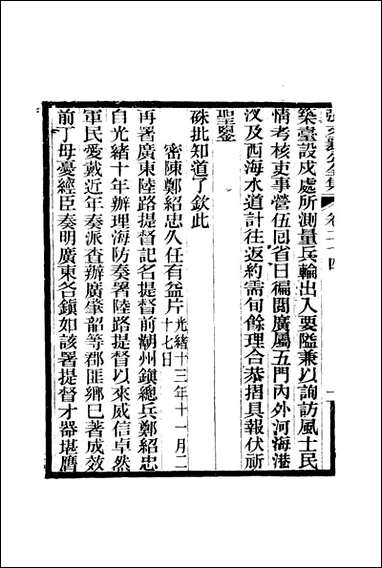 張文襄公全集 卷二十四
築臺設戍處所測量兵輪出入要隘兼以詢訪風土民
情考核吏事營伍回省日徧閱廣屬五門內外河海港
汊及西海水道計往返約需旬餘理合恭摺具報伏祈
聖鑒
硃批知道了欽此
密陳鄭紹忠久任有益片光緒十三年十一月二十七日
再署廣東陸路提督記名提督前潮州鎮總兵鄭紹忠
自光緒十年辦理海防奏署陸路提督以來威信卓然
軍民愛戴近年奏派查辦廣肇韶等郡匪鄉巳著成效
前丁母憂經臣奏明廣東各鎮如該署提督才器堪膺